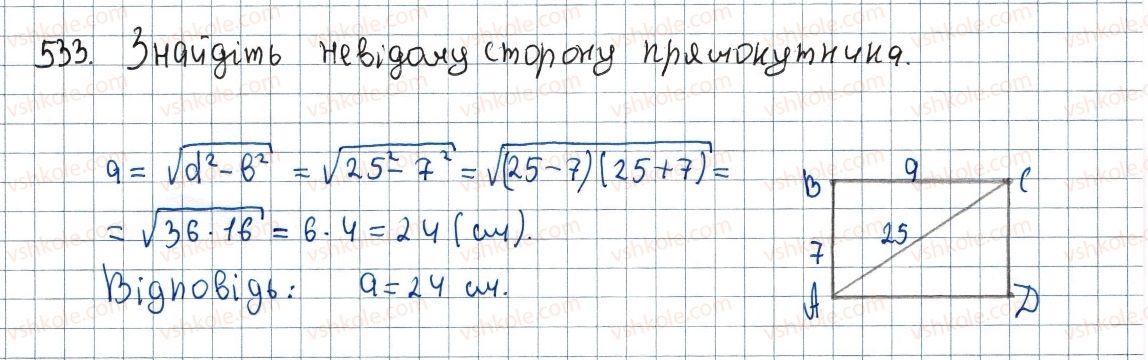 533. Знайдіть невідому сторону прямокутника.
a = √(d² − b²) = √(25² − 7²) = √((25−7)(25+7)) =
= √(36·16) = 6·4 = 24 (см).
Відповідь: a = 24 см.
B a C
7 25
A D
vshkole.com